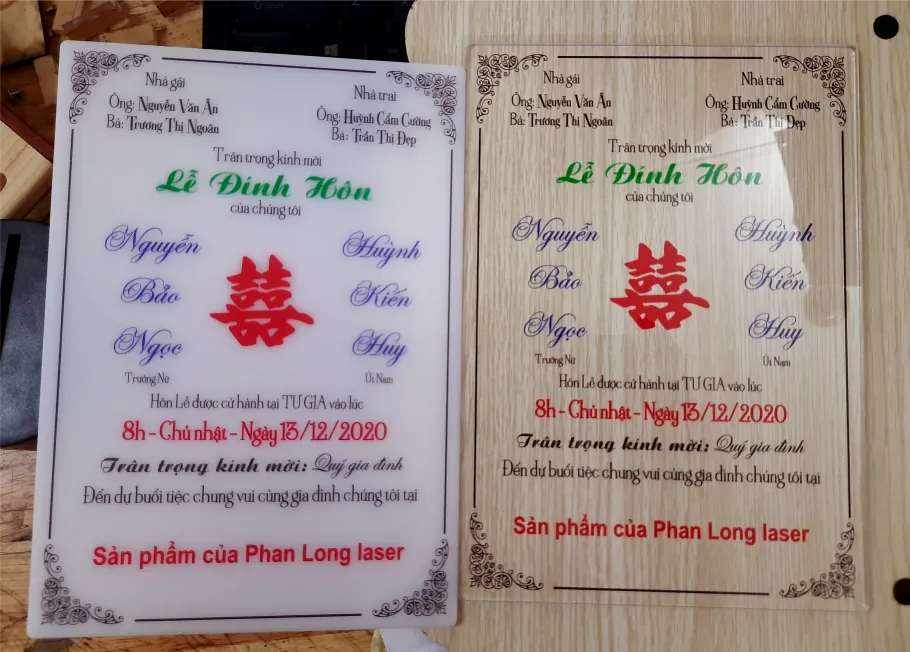 Nhà gái
Ông: Nguyễn Văn Ân
Bà: Trương Thị Ngoãn
Nhà trai
Ông: Huỳnh Cẩm Cường
Bà: Trần Thị Đẹp
Trân trọng kính mời
Lễ Đính Hôn
của chúng tôi
Nguyễn
Bảo
Ngọc
Trưởng Nữ
囍
Huỳnh
Kiến
Huy
Út Nam
Hôn Lễ được cử hành tại TƯ GIA vào lúc
8h - Chủ nhật - Ngày 13/12/2020
Trân trọng kính mời: Quý gia đình
Đến dự buổi tiệc chung vui cùng gia đình chúng tôi tại
Sản phẩm của Phan Long laser
Nhà gái
Ông: Nguyễn Văn Ân
Bà: Trương Thị Ngoãn
Nhà trai
Ông: Huỳnh Cẩm Cường
Bà: Trần Thị Đẹp
Trân trọng kính mời
Lễ Đính Hôn
của chúng tôi
Nguyễn
Bảo
Ngọc
Trưởng Nữ
囍
Huỳnh
Kiến
Huy
Út Nam
Hôn Lễ được cử hành tại TƯ GIA vào lúc
8h - Chủ nhật - Ngày 13/12/2020
Trân trọng kính mời: Quý gia đình
Đến dự buổi tiệc chung vui cùng gia đình chúng tôi tại
Sản phẩm của Phan Long laser